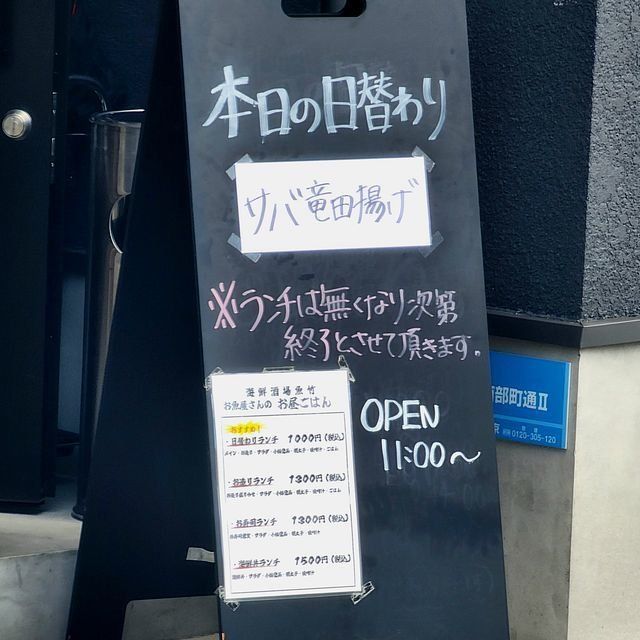 本日の日替わり
サバ竜田揚げ
※ランチは無くなり次第
終了とさせて頂きます。
海鮮酒場魚竹
お魚屋さんの お昼ごはん
おすすめ!
・日替わりランチ 1000円(税込)
・お造りランチ 1300円(税込)
・お寿司ランチ 1300円(税込)
・海鮮丼ランチ 1500円(税込)
OPEN
11:00～
部町通Ⅱ
0120-305-120